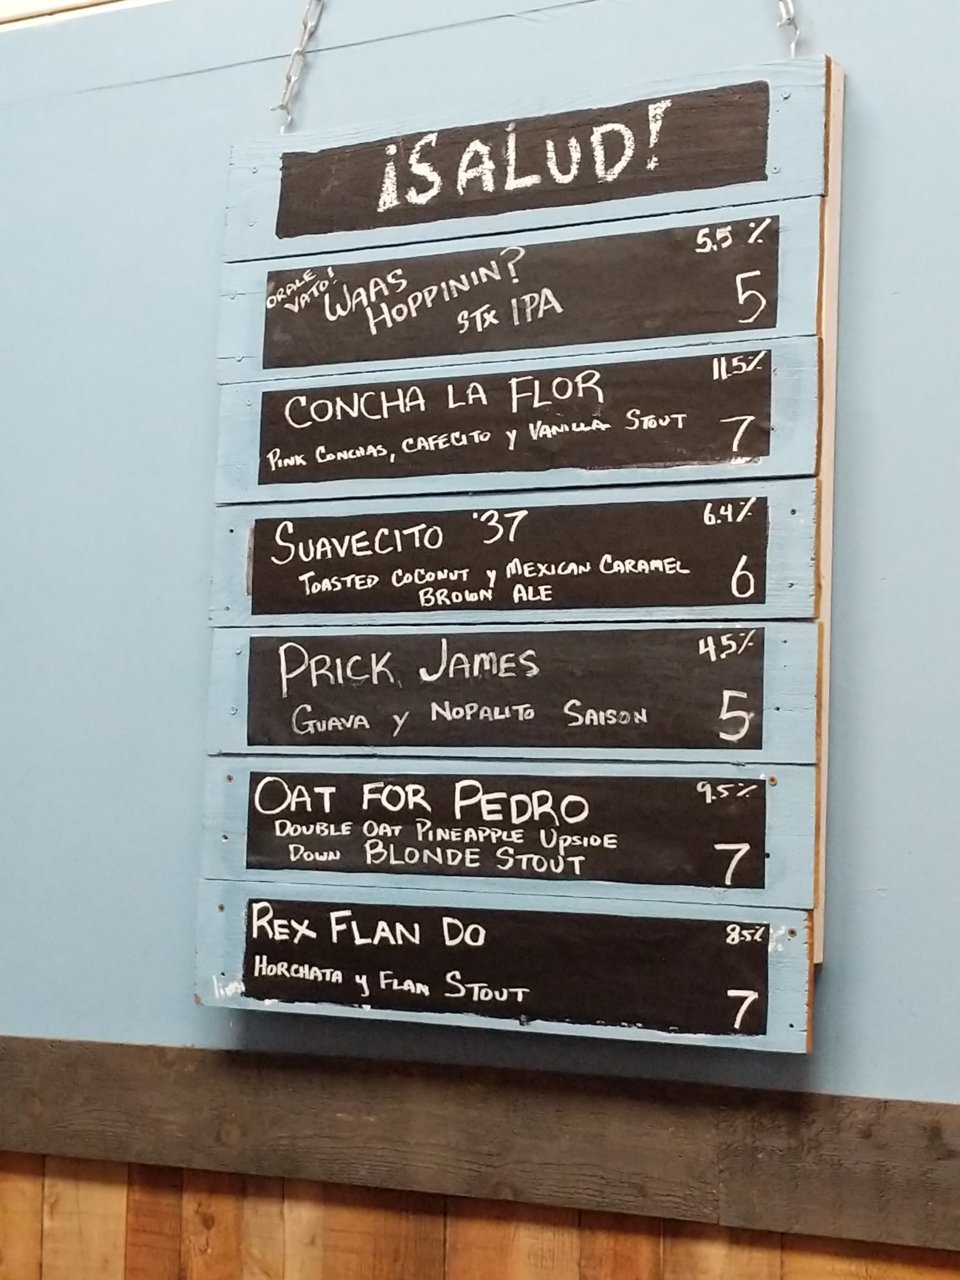 ¡SALUD!
ORALE
VATO!
WAAS
HOPPININ?
STX IPA
5.5 %
5
CONCHA LA FLOR
11.5%
PINK CONCHAS, CAFECITO y VANILLA STOUT
7
SUAVECITO '37
6.4%
TOASTED COCONUT y MEXICAN CARAMEL
BROWN ALE
6
PRICK JAMES
4.5%
GUAVA y NOPALITO SAISON
5
OAT FOR PEDRO
9.5%
DOUBLE OAT PINEAPPLE UPSIDE
DOWN BLONDE STOUT
7
REX FLAN DO
8.5%
HORCHATA y FLAN STOUT
7